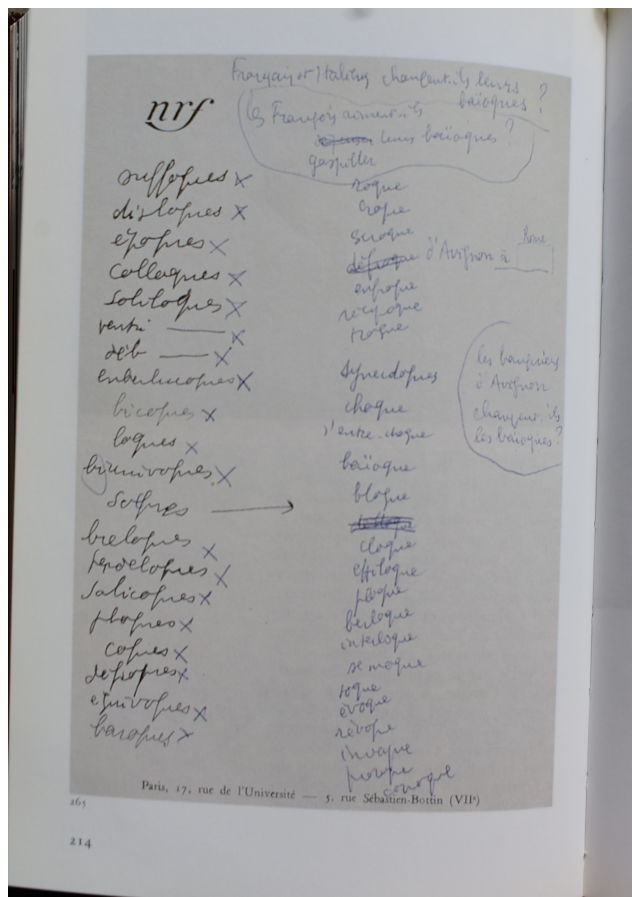 Français et Italiens changent-ils leurs
baïoques ?
nrf
les Français aiment-ils
leurs baïoques ?
gaspiller
suffoques x
disloques x
époques x
colloques x
Soliloques x
ventri — x
déb — x
emberlucoques x
bicoques x
loques x
biunivoques x
Socques →
breloques x
pendeloques x
Salicoques x
phoques x
coques x
défroques x
équivoques x
baroques x
roque
croque
escroque
défroque d'Avignon à Rome
enfroque
réciproque
troque
Synecdoques
choque
s'entre-choque
baïoque
bloque
cloque
effiloque
ploque
berloque
interloque
se moque
toque
évoque
révoque
invoque
provoque
convoque
les banquiers
d'Avignon
changent-ils
les baïoques ?
Paris, 17, rue de l'Université — 5, rue Sébastien-Bottin (VIIe)
265
214